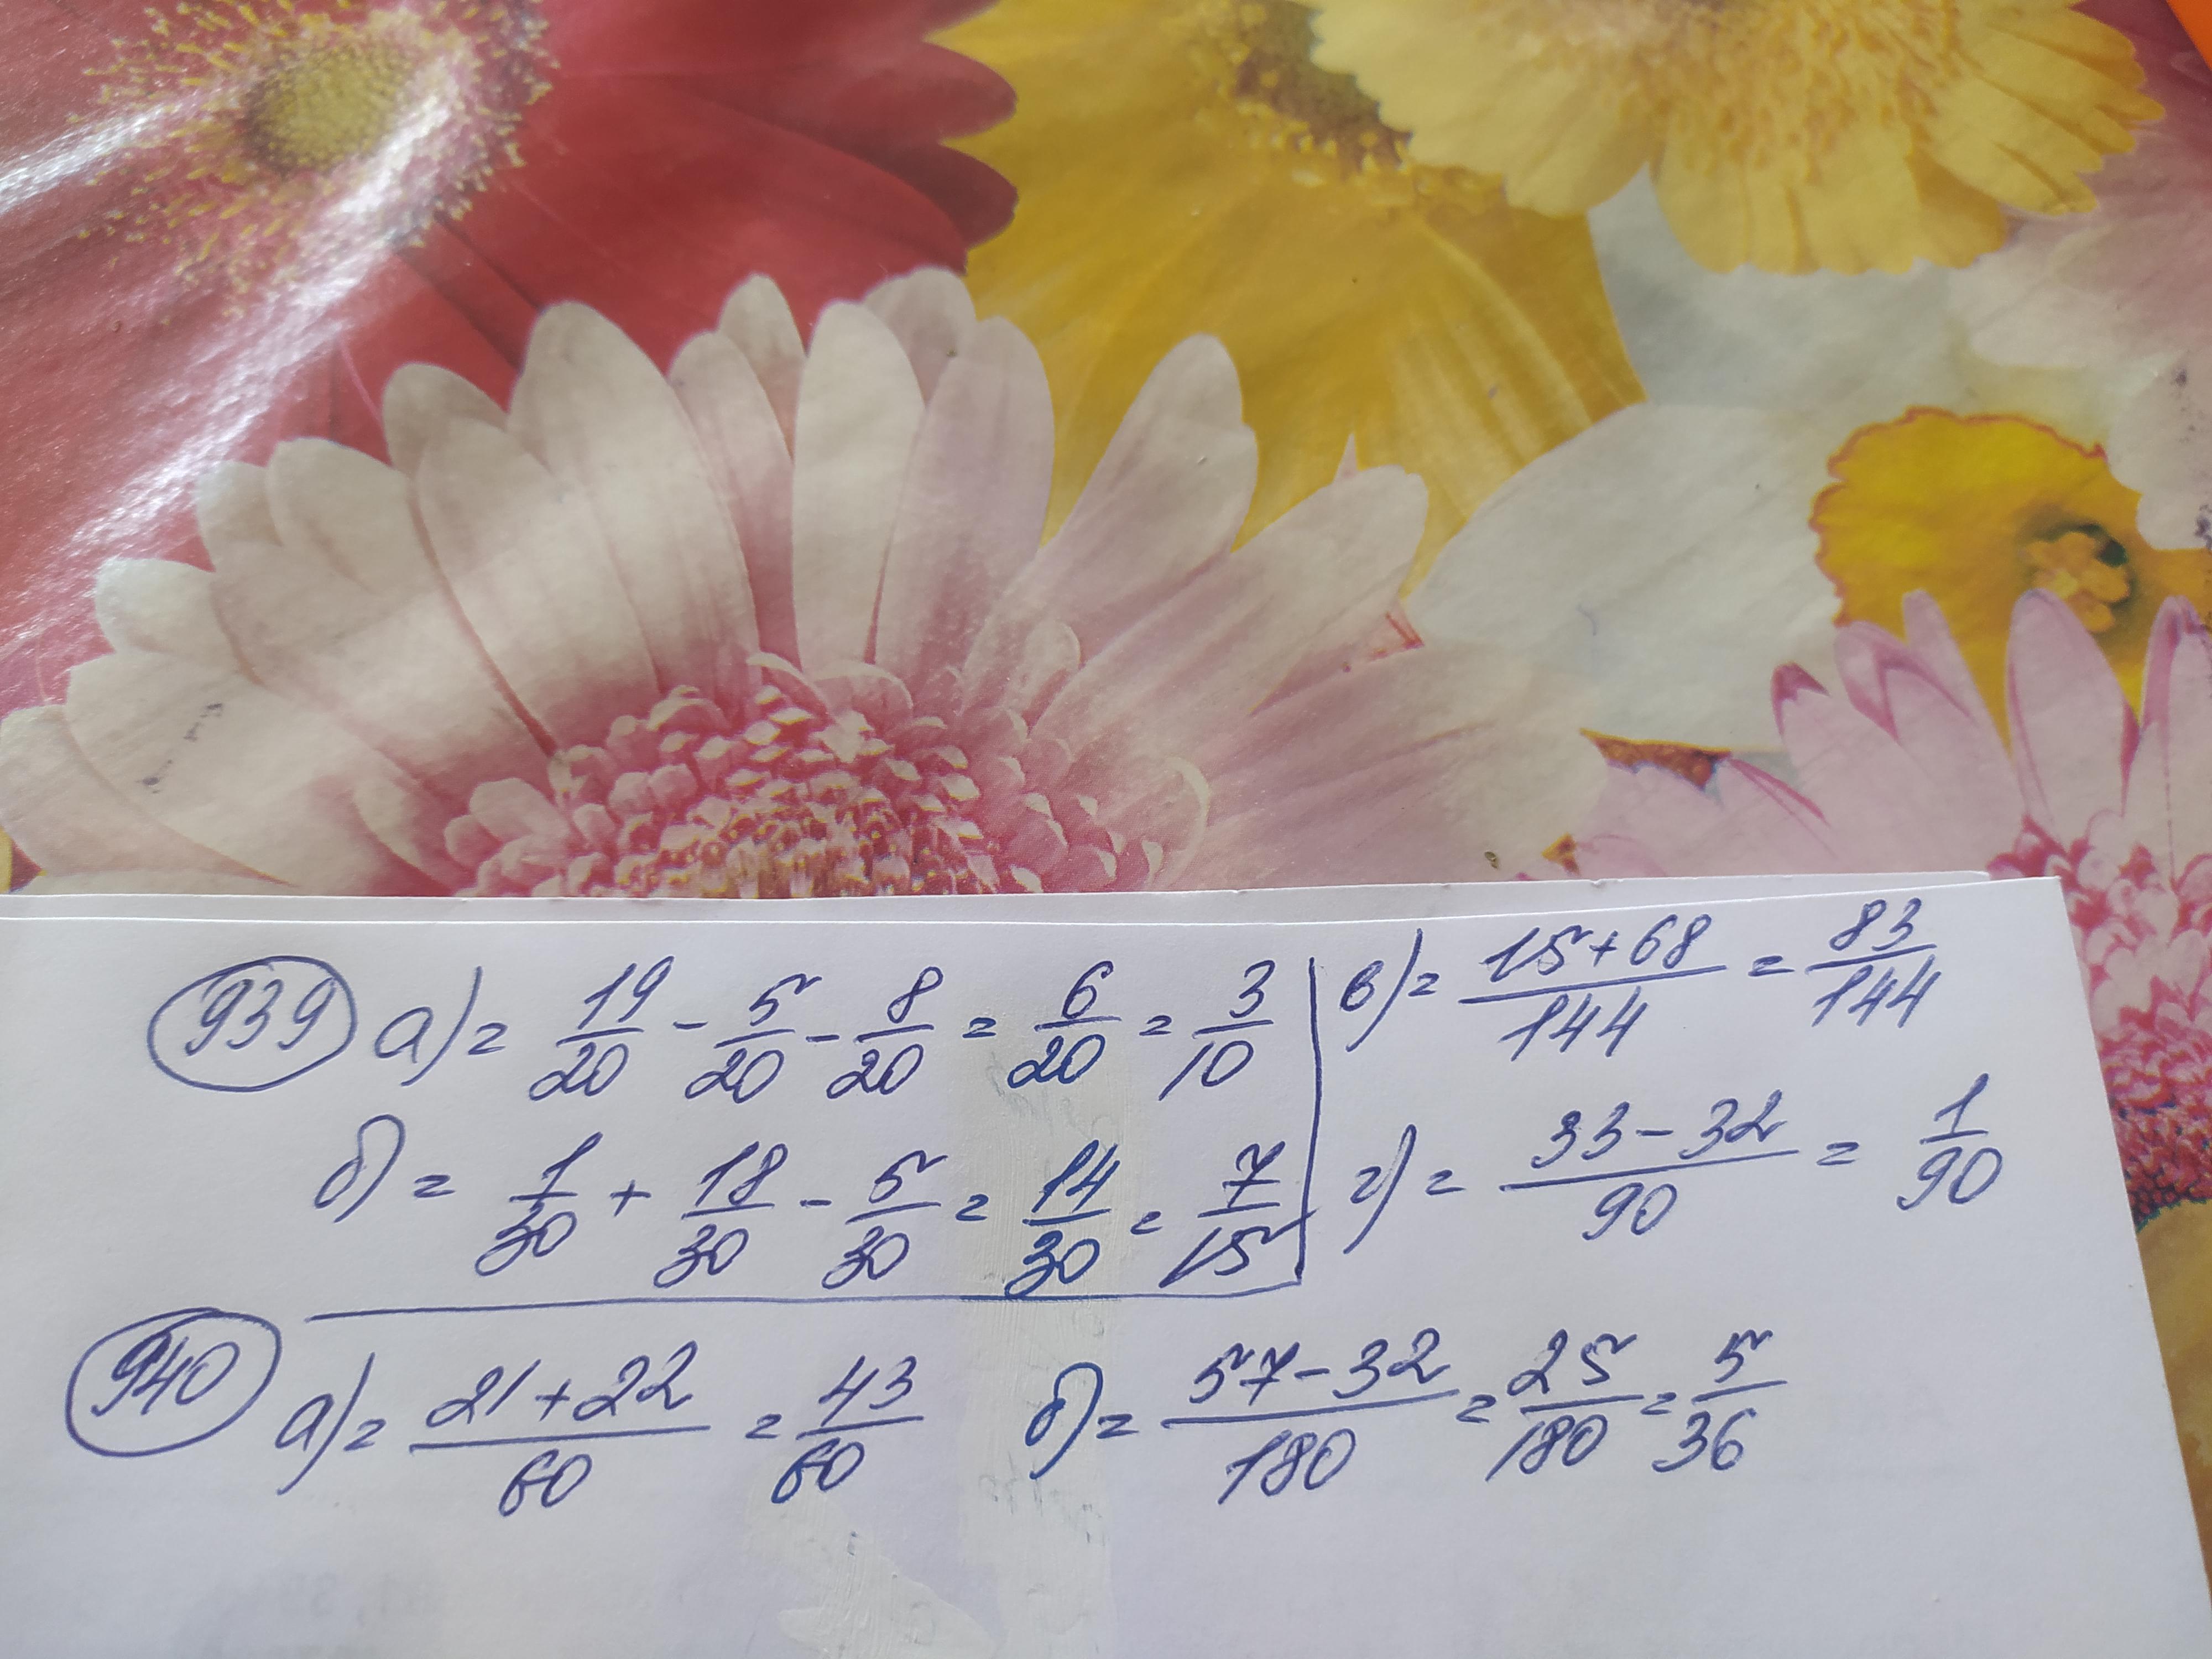 939 а) = 19/20 - 5/20 - 8/20 = 6/20 = 3/10
б) = 1/30 + 18/30 - 5/30 = 14/30 = 7/15
в) = (15+68)/144 = 83/144
г) = (33-32)/90 = 1/90
940 а) = (21+22)/60 = 43/60
б) = (57-32)/180 = 25/180 = 5/36